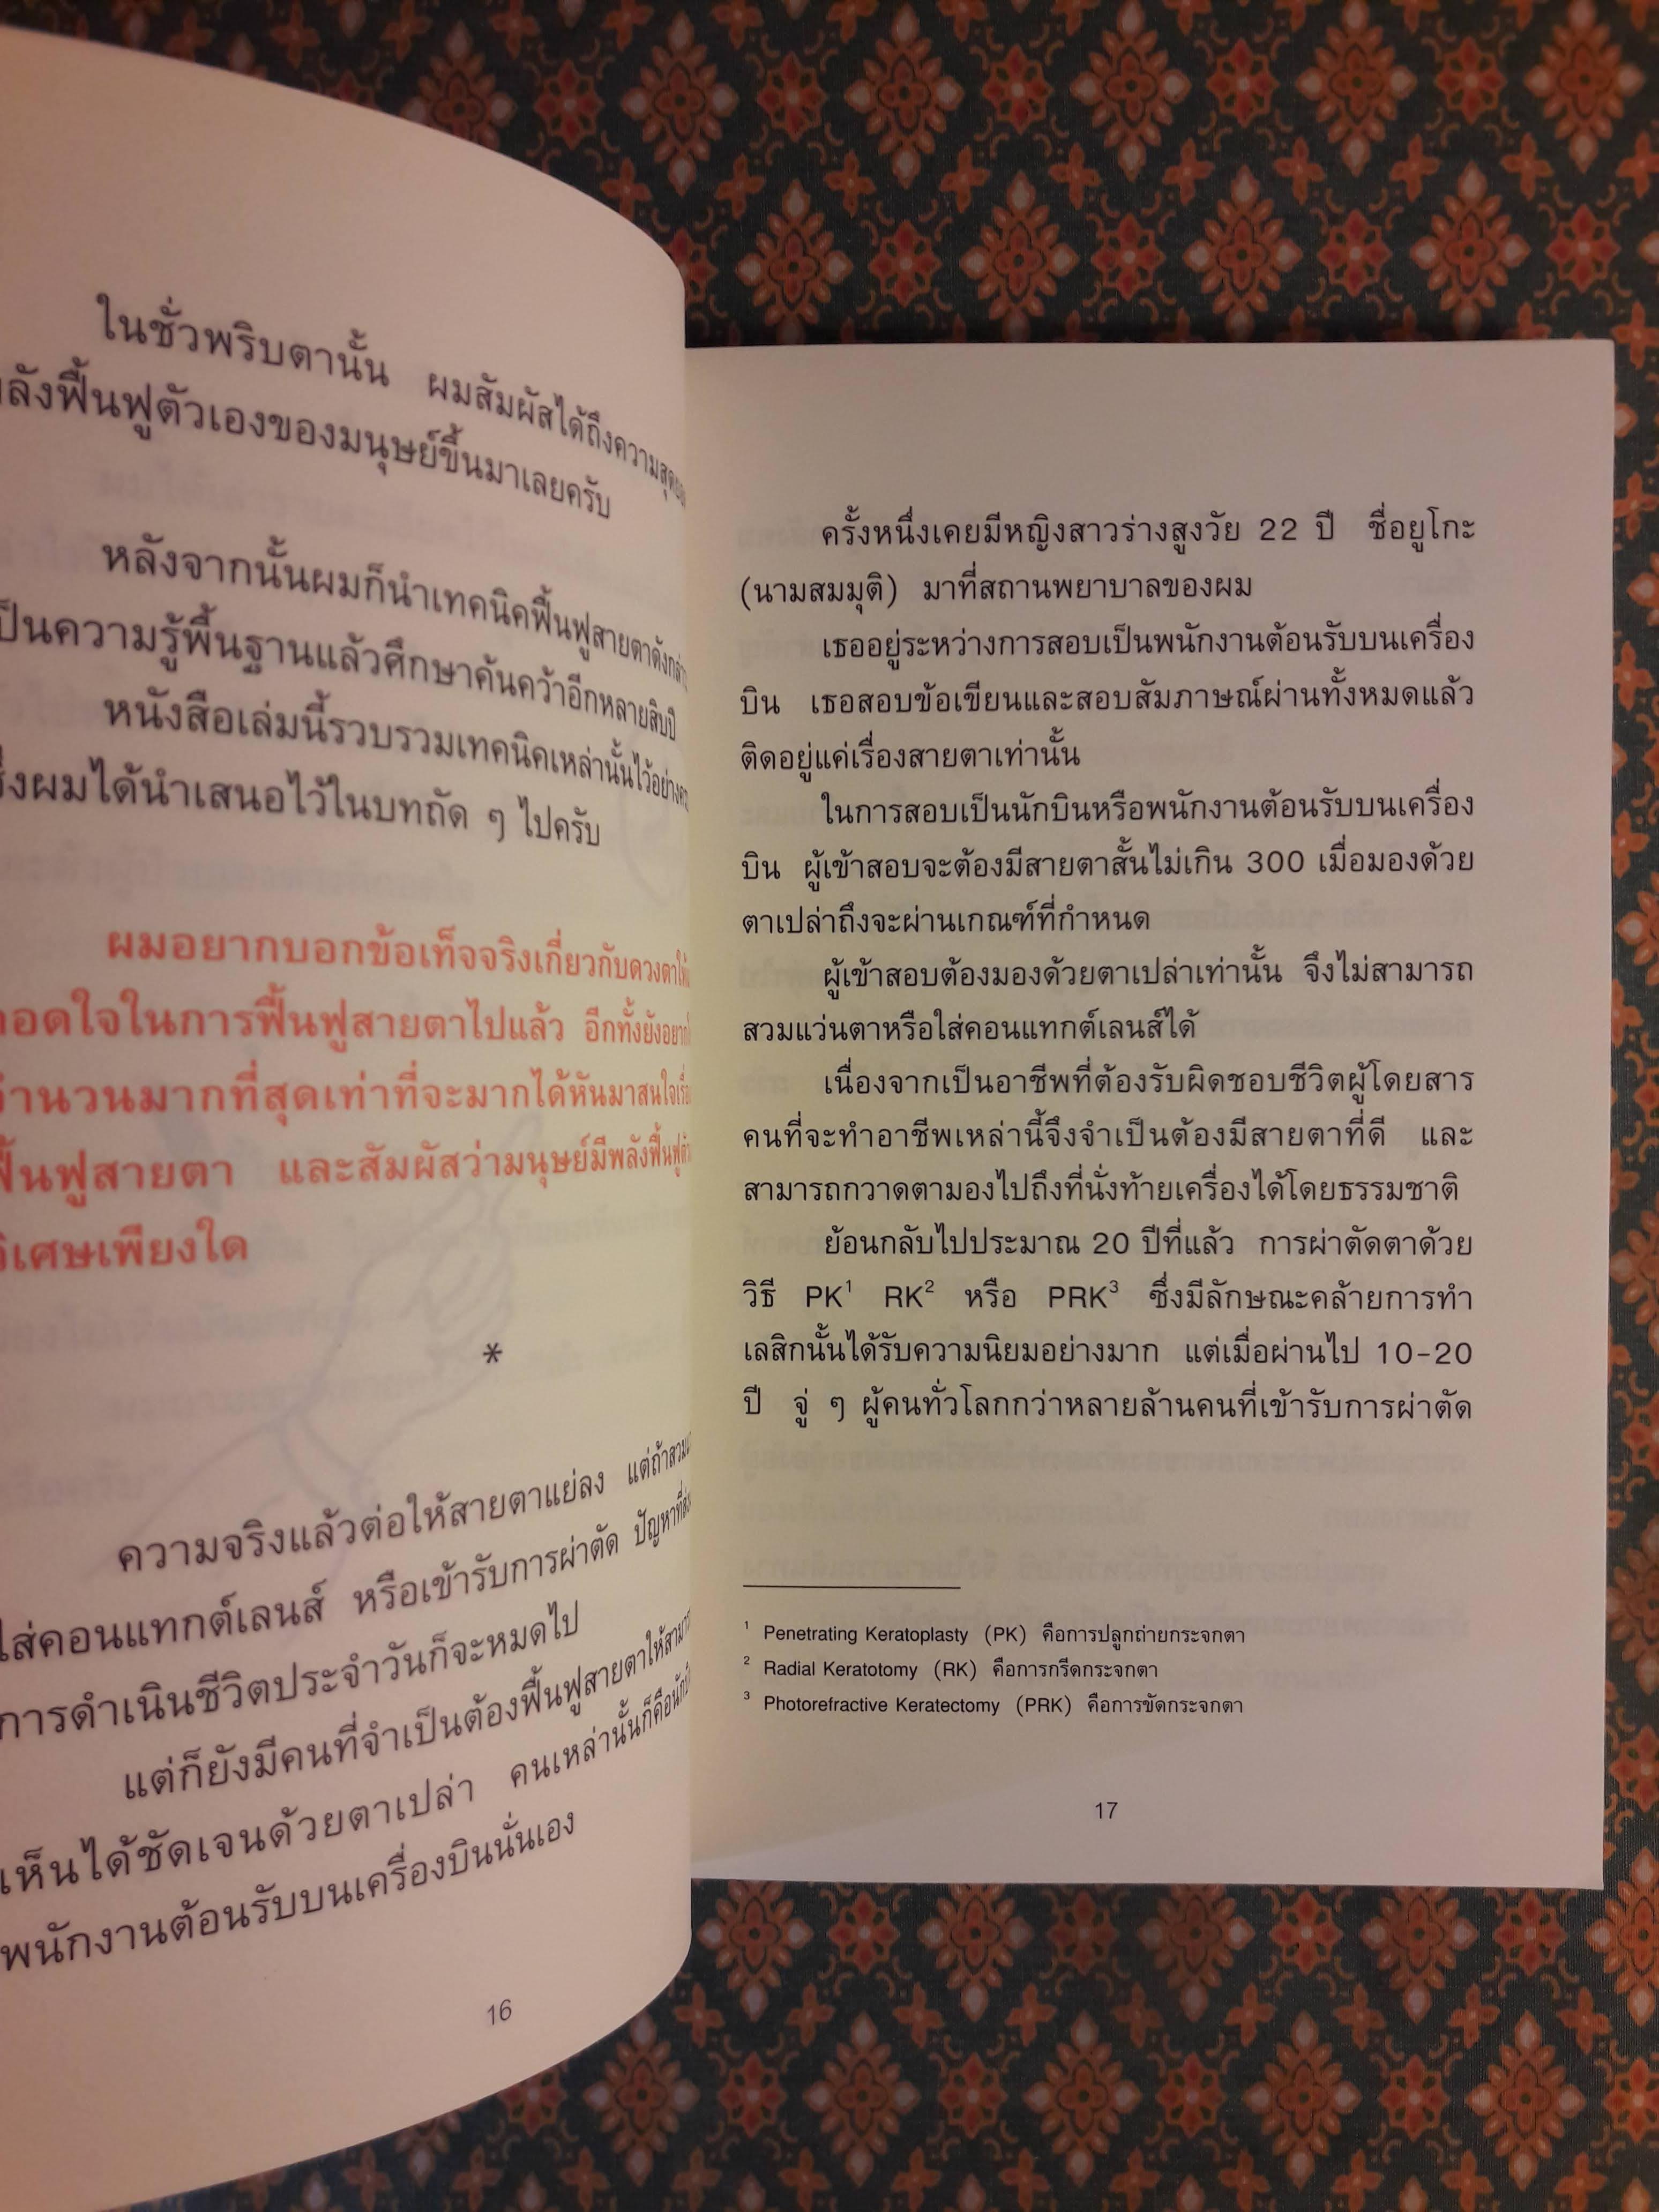 ในชั่วพริบตานั้น ผมสัมผัสได้ถึงความสุด
ลังฟื้นฟูตัวเองของมนุษย์ขึ้นมาเลยครับ
หลังจากนั้นผมก็นำเทคนิคฟื้นฟูสายตาดังกล่าว
ป็นความรู้พื้นฐานแล้วศึกษาค้นคว้าอีกหลายสิบปี
หนังสือเล่มนี้รวบรวมเทคนิคเหล่านั้นไว้อย่าง
ซึ่งผมได้นำเสนอไว้ในบทถัด ๆ ไปครับ
ผมอยากบอกข้อเท็จจริงเกี่ยวกับดวงตาให้
ถอดใจในการฟื้นฟูสายตาไปแล้ว อีกทั้งยังอยาก
จำนวนมากที่สุดเท่าที่จะมากได้หันมาสนใจเรื่อง
ฟื้นฟูสายตา และสัมผัสว่ามนุษย์มีพลังฟื้นฟู
วิเศษเพียงใด
*
ความจริงแล้วต่อให้สายตาแย่ลง แต่ถ้าสวม
ใส่คอนแทกต์เลนส์ หรือเข้ารับการผ่าตัด ปัญหาที่
การดำเนินชีวิตประจำวันก็จะหมดไป
แต่ก็ยังมีคนที่จำเป็นต้องฟื้นฟูสายตาให้สามารถ
เห็นได้ชัดเจนด้วยตาเปล่า คนเหล่านั้นก็คือนักบิน
พนักงานต้อนรับบนเครื่องบินนั่นเอง
16
ครั้งหนึ่งเคยมีหญิงสาวร่างสูงวัย 22 ปี ชื่อยูโกะ
(นามสมมุติ) มาที่สถานพยาบาลของผม
เธออยู่ระหว่างการสอบเป็นพนักงานต้อนรับบนเครื่อง
บิน เธอสอบข้อเขียนและสอบสัมภาษณ์ผ่านทั้งหมดแล้ว
ติดอยู่แค่เรื่องสายตาเท่านั้น
ในการสอบเป็นนักบินหรือพนักงานต้อนรับบนเครื่อง
บิน ผู้เข้าสอบจะต้องมีสายตาสั้นไม่เกิน 300 เมื่อมองด้วย
ตาเปล่าถึงจะผ่านเกณฑ์ที่กำหนด
ผู้เข้าสอบต้องมองด้วยตาเปล่าเท่านั้น จึงไม่สามารถ
สวมแว่นตาหรือใส่คอนแทกต์เลนส์ได้
เนื่องจากเป็นอาชีพที่ต้องรับผิดชอบชีวิตผู้โดยสาร
คนที่จะทำอาชีพเหล่านี้จึงจำเป็นต้องมีสายตาที่ดี และ
สามารถกวาดตามองไปถึงที่นั่งท้ายเครื่องได้โดยธรรมชาติ
ย้อนกลับไปประมาณ 20 ปีที่แล้ว การผ่าตัดตาด้วย
วิธี PK¹ RK² หรือ PRK³ ซึ่งมีลักษณะคล้ายการทำ
เลสิกนั้นได้รับความนิยมอย่างมาก แต่เมื่อผ่านไป 10-20
ปี จู่ ๆ ผู้คนทั่วโลกกว่าหลายล้านคนที่เข้ารับการผ่าตัด
¹ Penetrating Keratoplasty (PK) คือการปลูกถ่ายกระจกตา
² Radial Keratotomy (RK) คือการกรีดกระจกตา
³ Photorefractive Keratectomy (PRK) คือการขัดกระจกตา
17